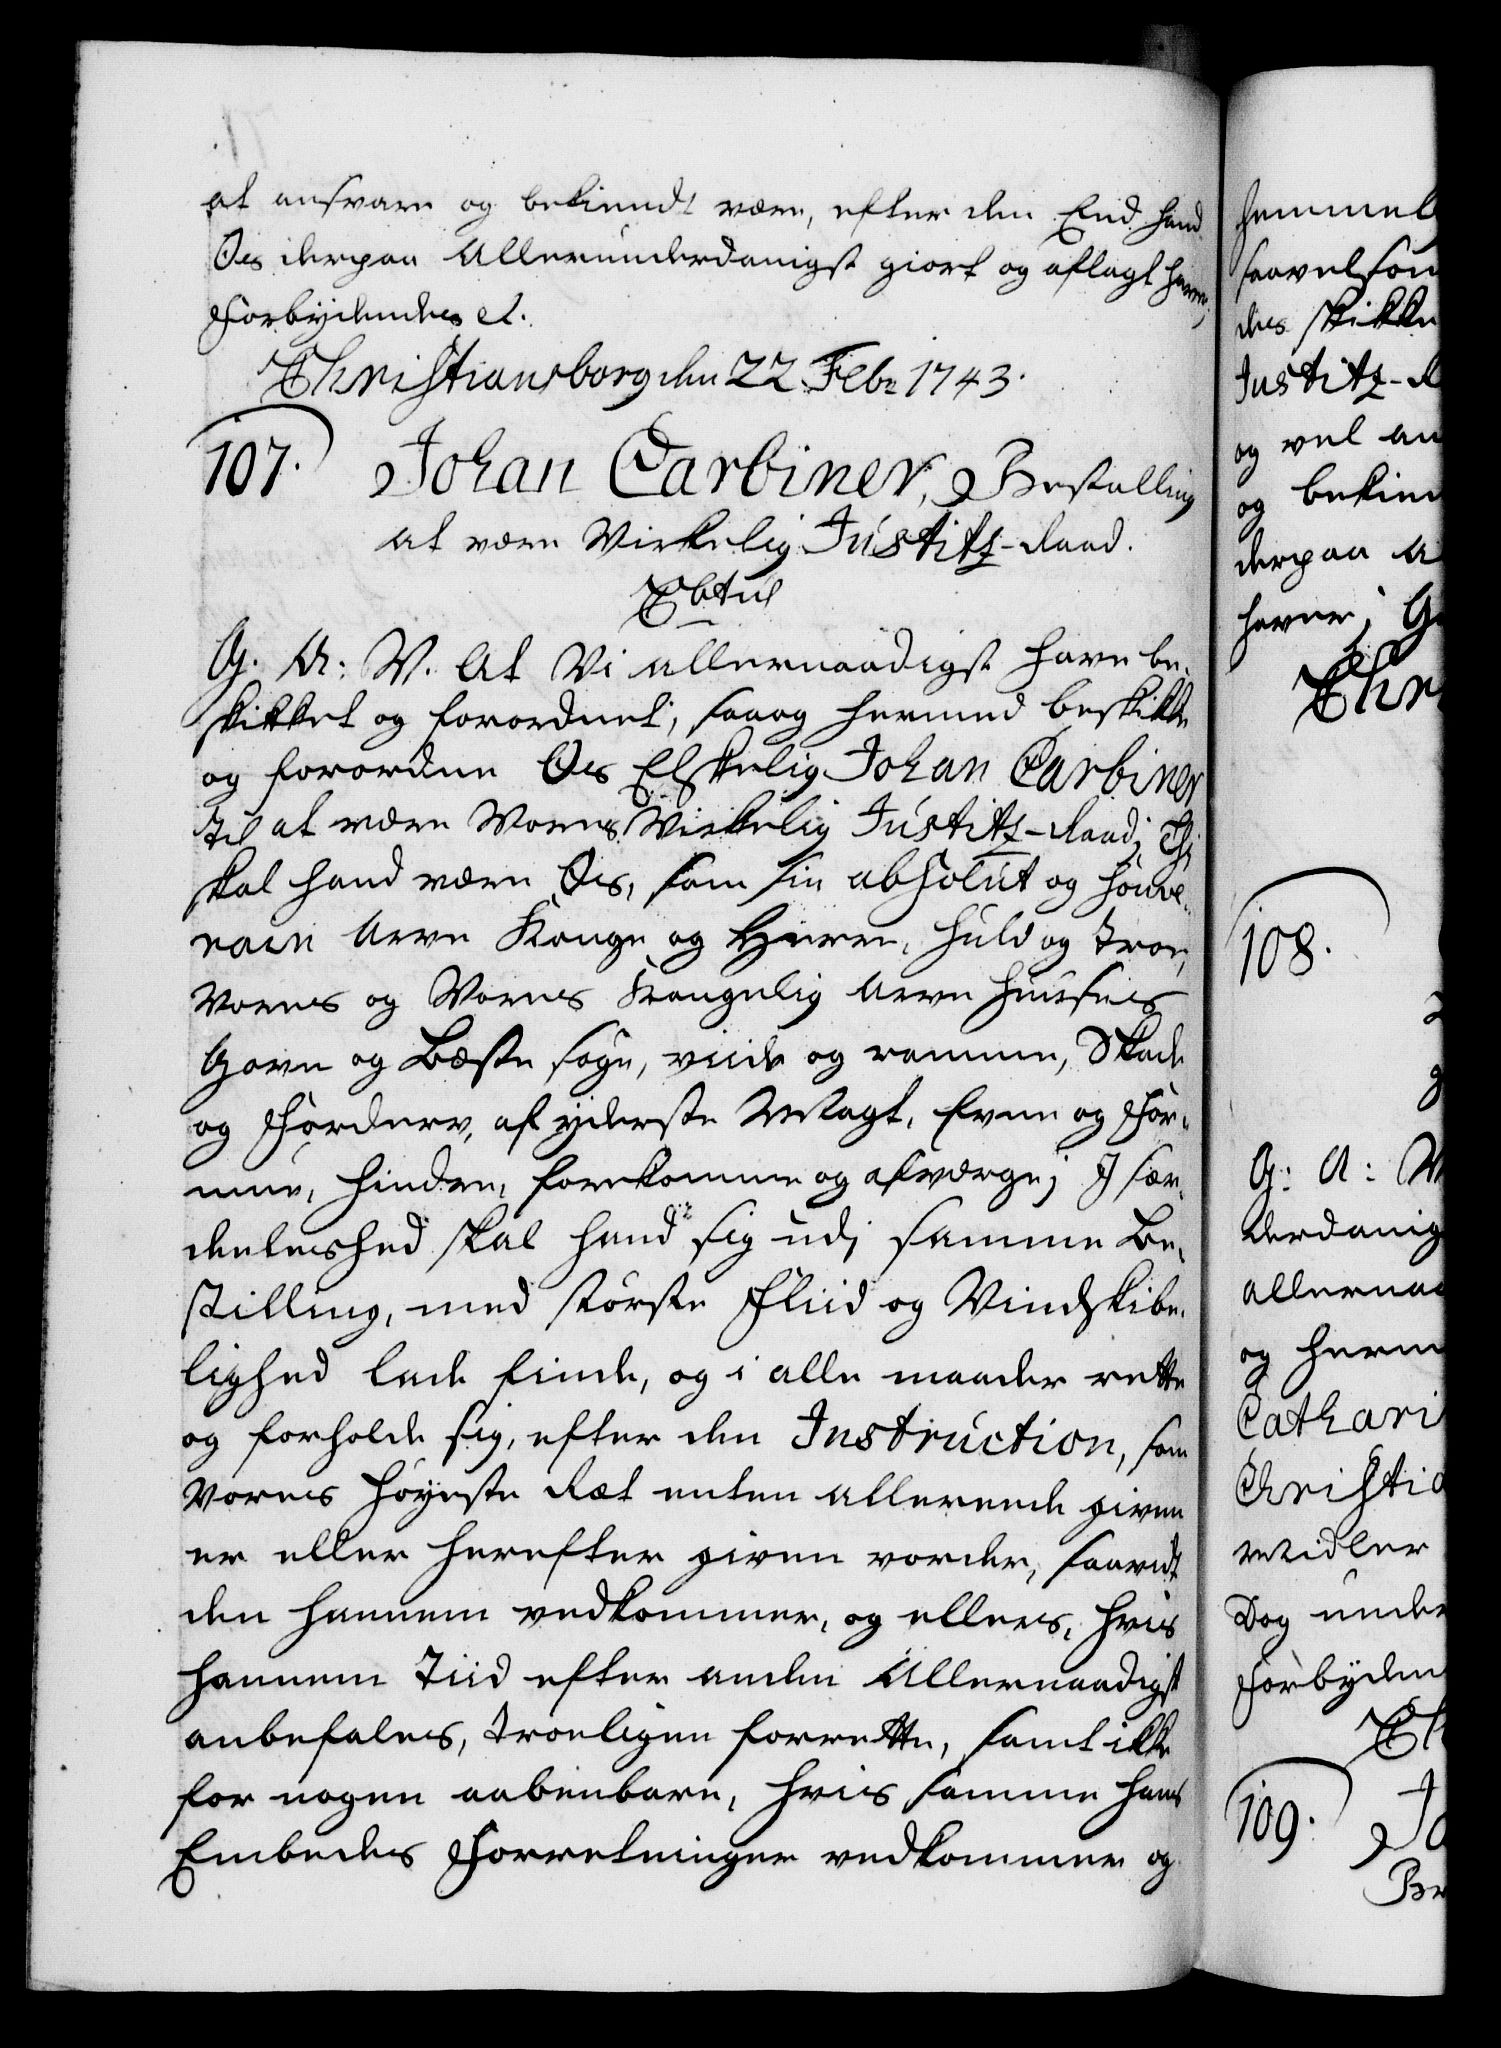 at ansvare og bekiendt være, efter den Eed hand
Os derpaa Allerunderdanigst giort og aflagt haver;
Forbydendes et.
Christiansborg den 22 Febr 1743.
107. Johan Carbiner, Bestalling
at være Virkelig Justitz-Raad.
G. A: V. At Vi allernaadigst have be-
skikket og forordnet, saa og hermed beskikke
og forordne Os Elskelig Johan Carbiner
til at være Vores Virkelig Justitz-Raad; Thj
skal hand være Os, som sin absolut og souve-
rain Arve Konge og Herre, huld og troe,
Vores og Vores Kongelig Arve Huuses
Gavn og Bæste søge, viide og ramme, Skade
og Forderv, af yderste Magt, Evne og For-
mue, hindre, forekomme og afværge; J sær-
deeleshed skal hand sig udj samme Be-
stilling, med største Fliid og Vindskibe-
lighed lade finde, og i alle maader rette
og forholde sig, efter den Instruction, som
Vores Høyeste Ræt enten allereede given
er eller herefter given vorder, saavidt
den hannem vedkommer, og ellers, hvis
hannem Tiid efter anden Allernaadigst
anbefales, troeligen forrette, samt ikke
for nogen aabenbare, hvis samme hans
Embedes Forretninger vedkommer og
hemmel
saavelsom
des skikke
Justitz-R
og vel an
og bekien
derpaa A
haver; G
Chr
108.
G: A: V
derdanig
allernaa
og herm
Cathari
Christia
Midler
Dog unde
Forbyden
Ch
109. Jo
Be